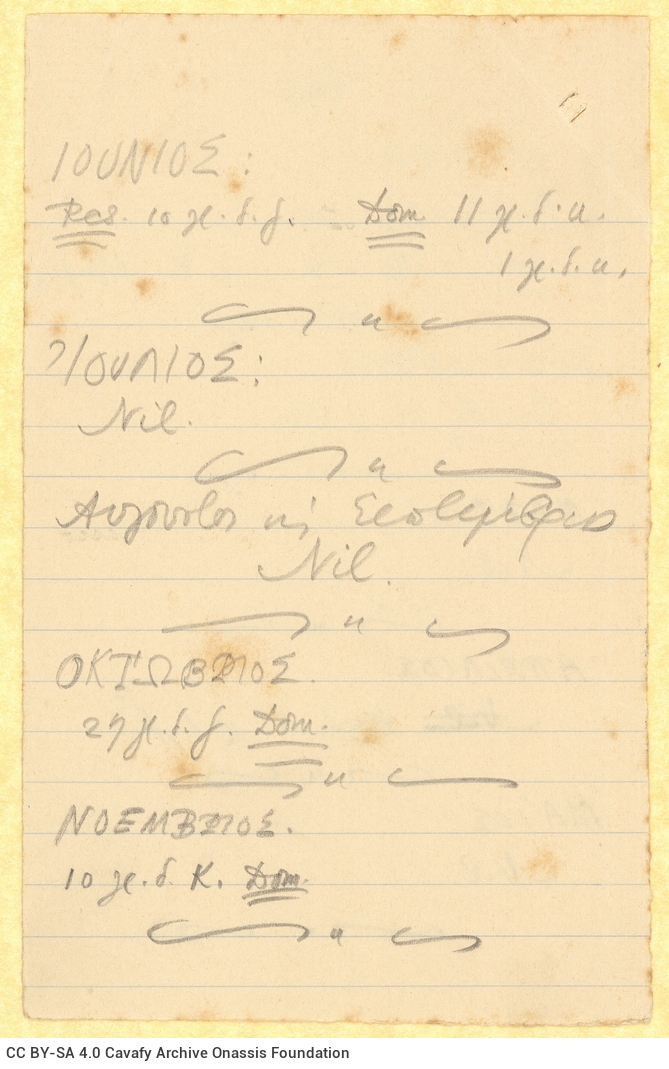 ΙΟΥΝΙΟΣ:
Res. 10 γι.δ.γ. Dom. 11 γι.δ.α.
1 γι.δ.α.
"
ἸΟΥΛΙΟΣ:
Nil.
"
Αυγουστος κι Σεπτεμβριο
Nil.
"
ΟΚΤΩΒΡΙΟΣ.
27 γι.δ.γ. Dom.
"
ΝΟΕΜΒΡΙΟΣ.
10 γι.δ. Κ. Dom.
"
CC BY-SA 4.0 Cavafy Archive Onassis Foundation